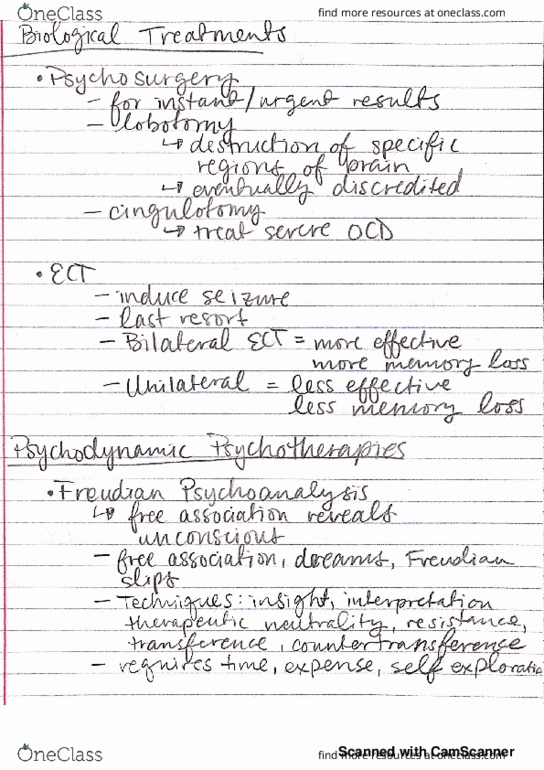 OneClass
find more resources at oneclass.com
Biological Treatments
• Psychosurgery
- for instant/urgent results
- lobotomy
↳ destruction of specific
regions of brain
↳ eventually discredited
- cingulotomy
↳ treat severe OCD
• ECT
- induce seizure
- last resort
- Bilateral ECT = more effective
more memory loss
- Unilateral = less effective
less memory loss
Psychodynamic Psychotherapies
• Freudian Psychoanalysis
↳ free association reveals
unconscious
- free association, dreams, Freudian
slips
- Techniques: insight, interpretation
therapeutic neutrality, resistance,
transference, countertransference
- requires time, expense, self exploratio
OneClass
find more resources at oneclass.com
Scanned with CamScanner